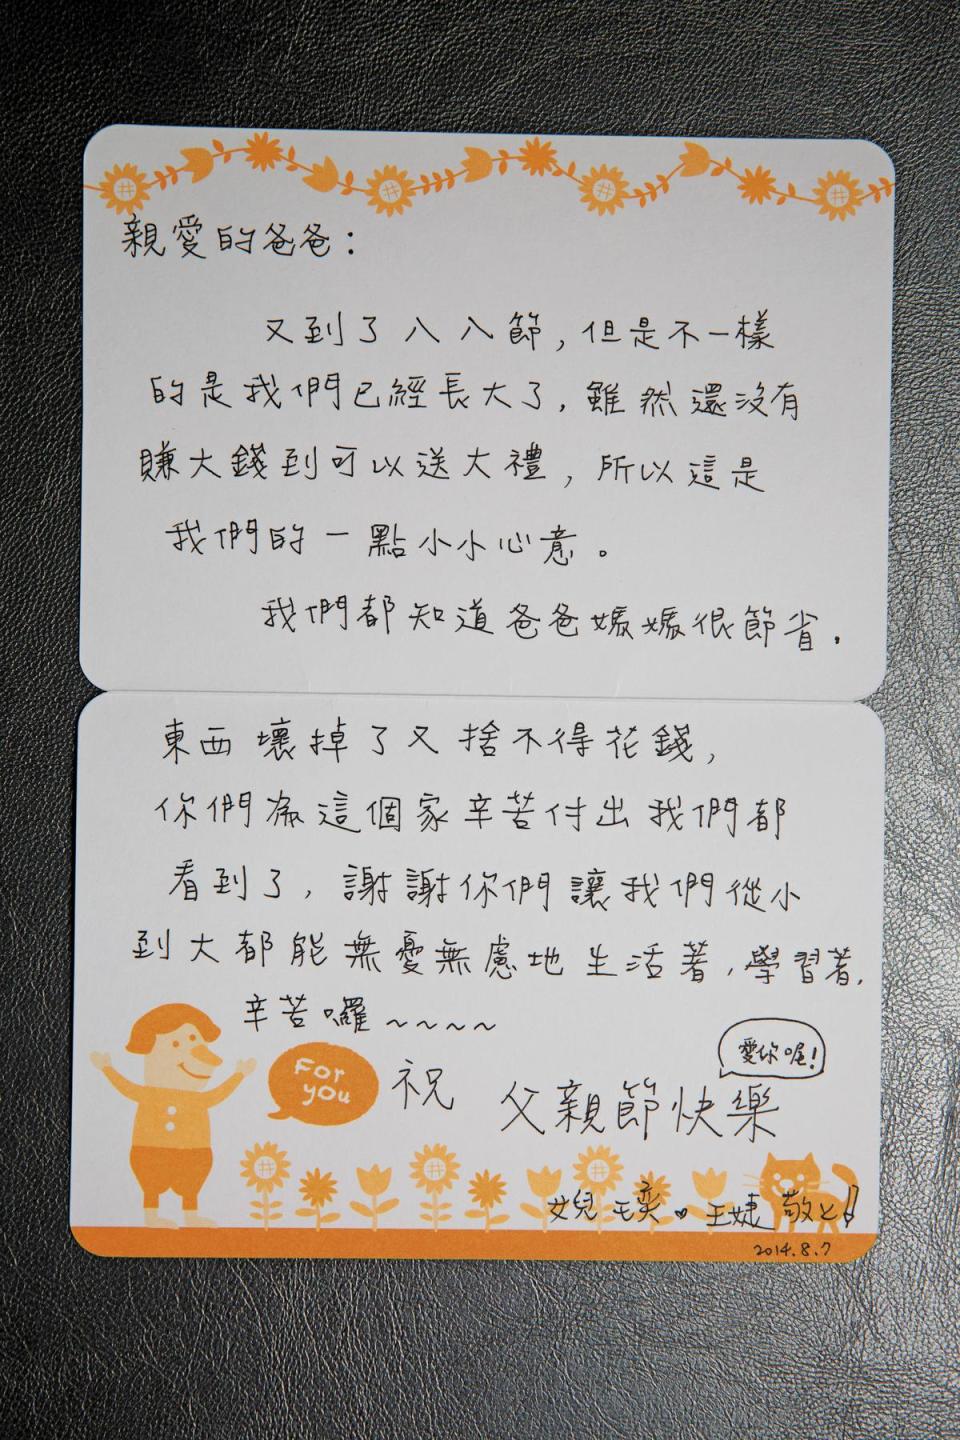 親愛的爸爸：
又到了八八節，但是不一樣
的是我們已經長大了，雖然還沒有
賺大錢到可以送大禮，所以這是
我們的一點小小心意。
我們都知道爸爸媽媽很節省，
東西壞掉了又捨不得花錢，
你們為這個家辛苦付出我們都
看到了，謝謝你們讓我們從小
到大都能無憂無慮地生活著，學習著，
辛苦囉~~~~
For you
祝
愛你喔!
父親節快樂
女兒 奕 王婕 敬上!
2014.8.7